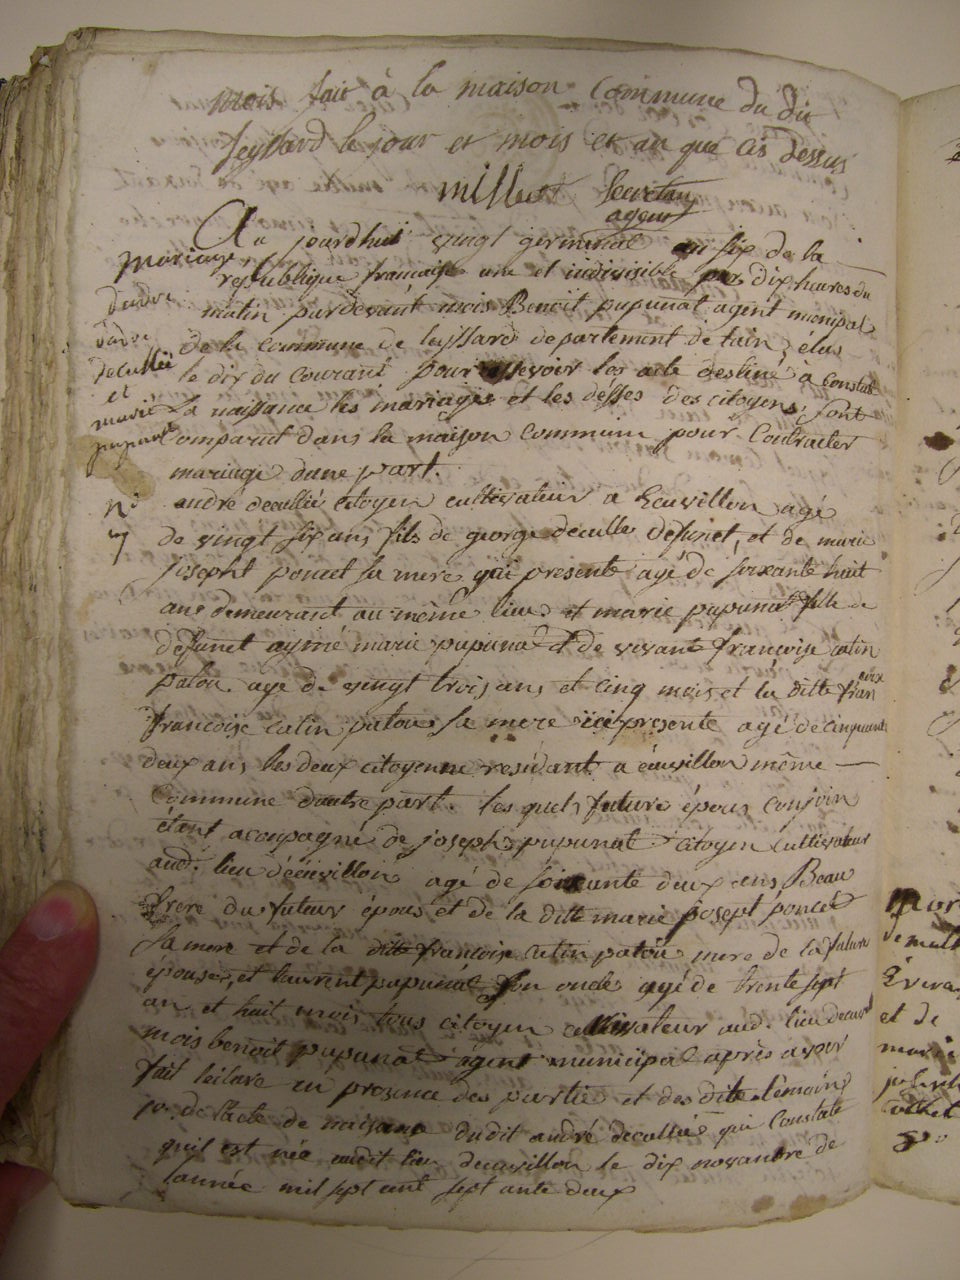 mois fait à la maison Commune du dit
leyssard le jour et mois et an que cis dessus
millet secretair
agent
Au jourdhui vingt germinal an six de la
mariage
republique francaise une et indivisible par dix heures du
matin pardevant mois Benoit pupunat agent municipal
de la Commune de leyssard departement de lain elus
le dix du Courant pour ressevoir les acte destiné a Constaté
la naissance les mariages et les désses des citoyens, sont
andre
decullié
et
marie
pupunat
Comparut dans la maison Commune pour Contracter
mariage dune part.
n°
7
andre decullié citoyen cultivateur a Ecuvillon agé
de vingt six ans fils de george decullié défunct, et de marie
joseph poncet sa mere qui presente agé de soixante huit
ans demeurant au même lieu et marie pupunat fille de
défunct aymé marie pupunat et de vivant françoise catin
patou agé de vingt trois ans et cinq mois et la ditte fran
francoise catin patou sa mere ici presente agé de cinquante
deux ans les deux citoyenne residant a écuvillon même
Commune dautre part. les quels future épous conjoin
étant acoupagné de joseph pupunat citoyen Cultivateur
aud. lieu décuvillon agé de soixante deux ans Beau
frere du futeur épous et de la ditte marie josept poncet
sa mere et de la ditte francoise catin patou mere de la future
épouse, et laurent pupunat son oncle agé de trente sept
an et huit mois tous citoyen cultivateur aud. lieu decuvi
mois benoit pupunat agent municipal après avoir
fait leclare en presence des partie et des dite temoins
1°. de lacte de naisance dudit andré decullié qui Constate
quil est née audit lieu decuvillon le dix novanbre de
lannée mil sept cent sept ante deux
et de